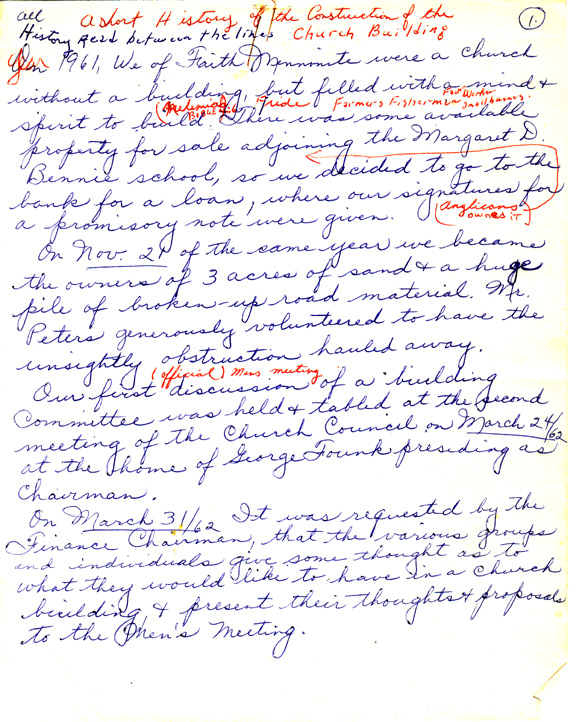 all
A Short History of the Construction of the
History Read between the lines
Church Building
1.
In 1961, We of Faith Mennonite were a church
without a building, but filled with a mind &
(Nehemiah Fride Farmers Fishermen
spirit to build. There was some available
property for sale adjoining the Margaret D.
Bennie school, so we decided to go to the
bank for a loan, where our signatures for
(Anglicans
owned iT)
a promisory note were given.
On Nov. 21 of the same year we became
the owners of 3 acres of sand & a huge
pile of broken-up road material. Mr.
Peters generously volunteered to have the
unsightly obstruction hauled away.
(official) Mens meeting
Our first discussion of a building
Committee was held & tabled at the second
meeting of the Church Council on March 24/62
at the home of George Founk presiding as
Chairman.
On March 31/62 It was requested by the
Finance Chairman, that the various groups
and individuals give some thought as to
what they would like to have in a church
building, & present their thoughts & proposals
to the Men's Meeting.